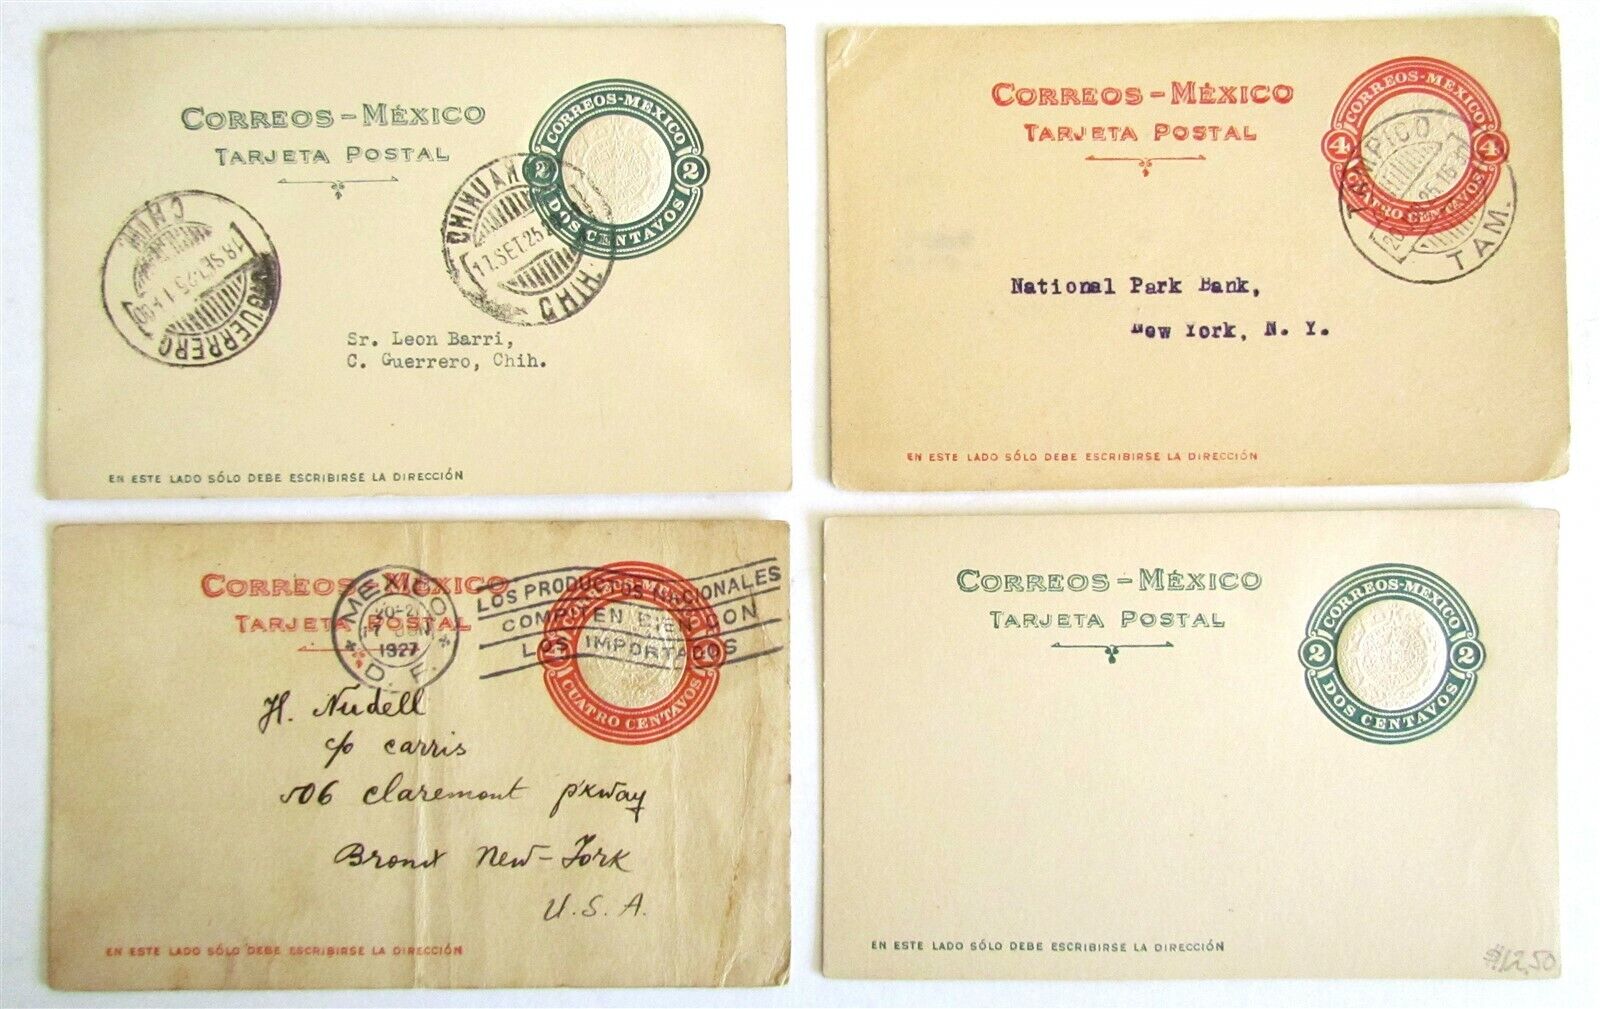 CORREOS-MÉXICO
TARJETA POSTAL
CORREOS-MEXICO
2 2
DOS CENTAVOS
CHIHUAH
17.SET.25
CHIH.
CHIH
18.SET.25
GUERRERO
Sr. Leon Barri,
C. Guerrero, Chih.
EN ESTE LADO SÓLO DEBE ESCRIBIRSE LA DIRECCIÓN
CORREOS-MÉXICO
TARJETA POSTAL
CORREOS-MEXICO
4 4
CUATRO CENTAVOS
TAMPICO
TAM.
National Park Bank,
New York, N. Y.
EN ESTE LADO SÓLO DEBE ESCRIBIRSE LA DIRECCIÓN
CORREOS-MÉXICO
TARJETA POSTAL
CORREOS-MEXICO
CUATRO CENTAVOS
MEXICO
17 JUN
1927
D. F.
LOS PRODUCTOS NACIONALES
COMPITEN BIEN CON
LOS IMPORTADOS
H. Nudell
c/o carris
506 claremont pkway
Bronx New-York
U.S.A.
EN ESTE LADO SÓLO DEBE ESCRIBIRSE LA DIRECCIÓN
CORREOS-MÉXICO
TARJETA POSTAL
CORREOS-MEXICO
2 2
DOS CENTAVOS
EN ESTE LADO SÓLO DEBE ESCRIBIRSE LA DIRECCIÓN
$12.50